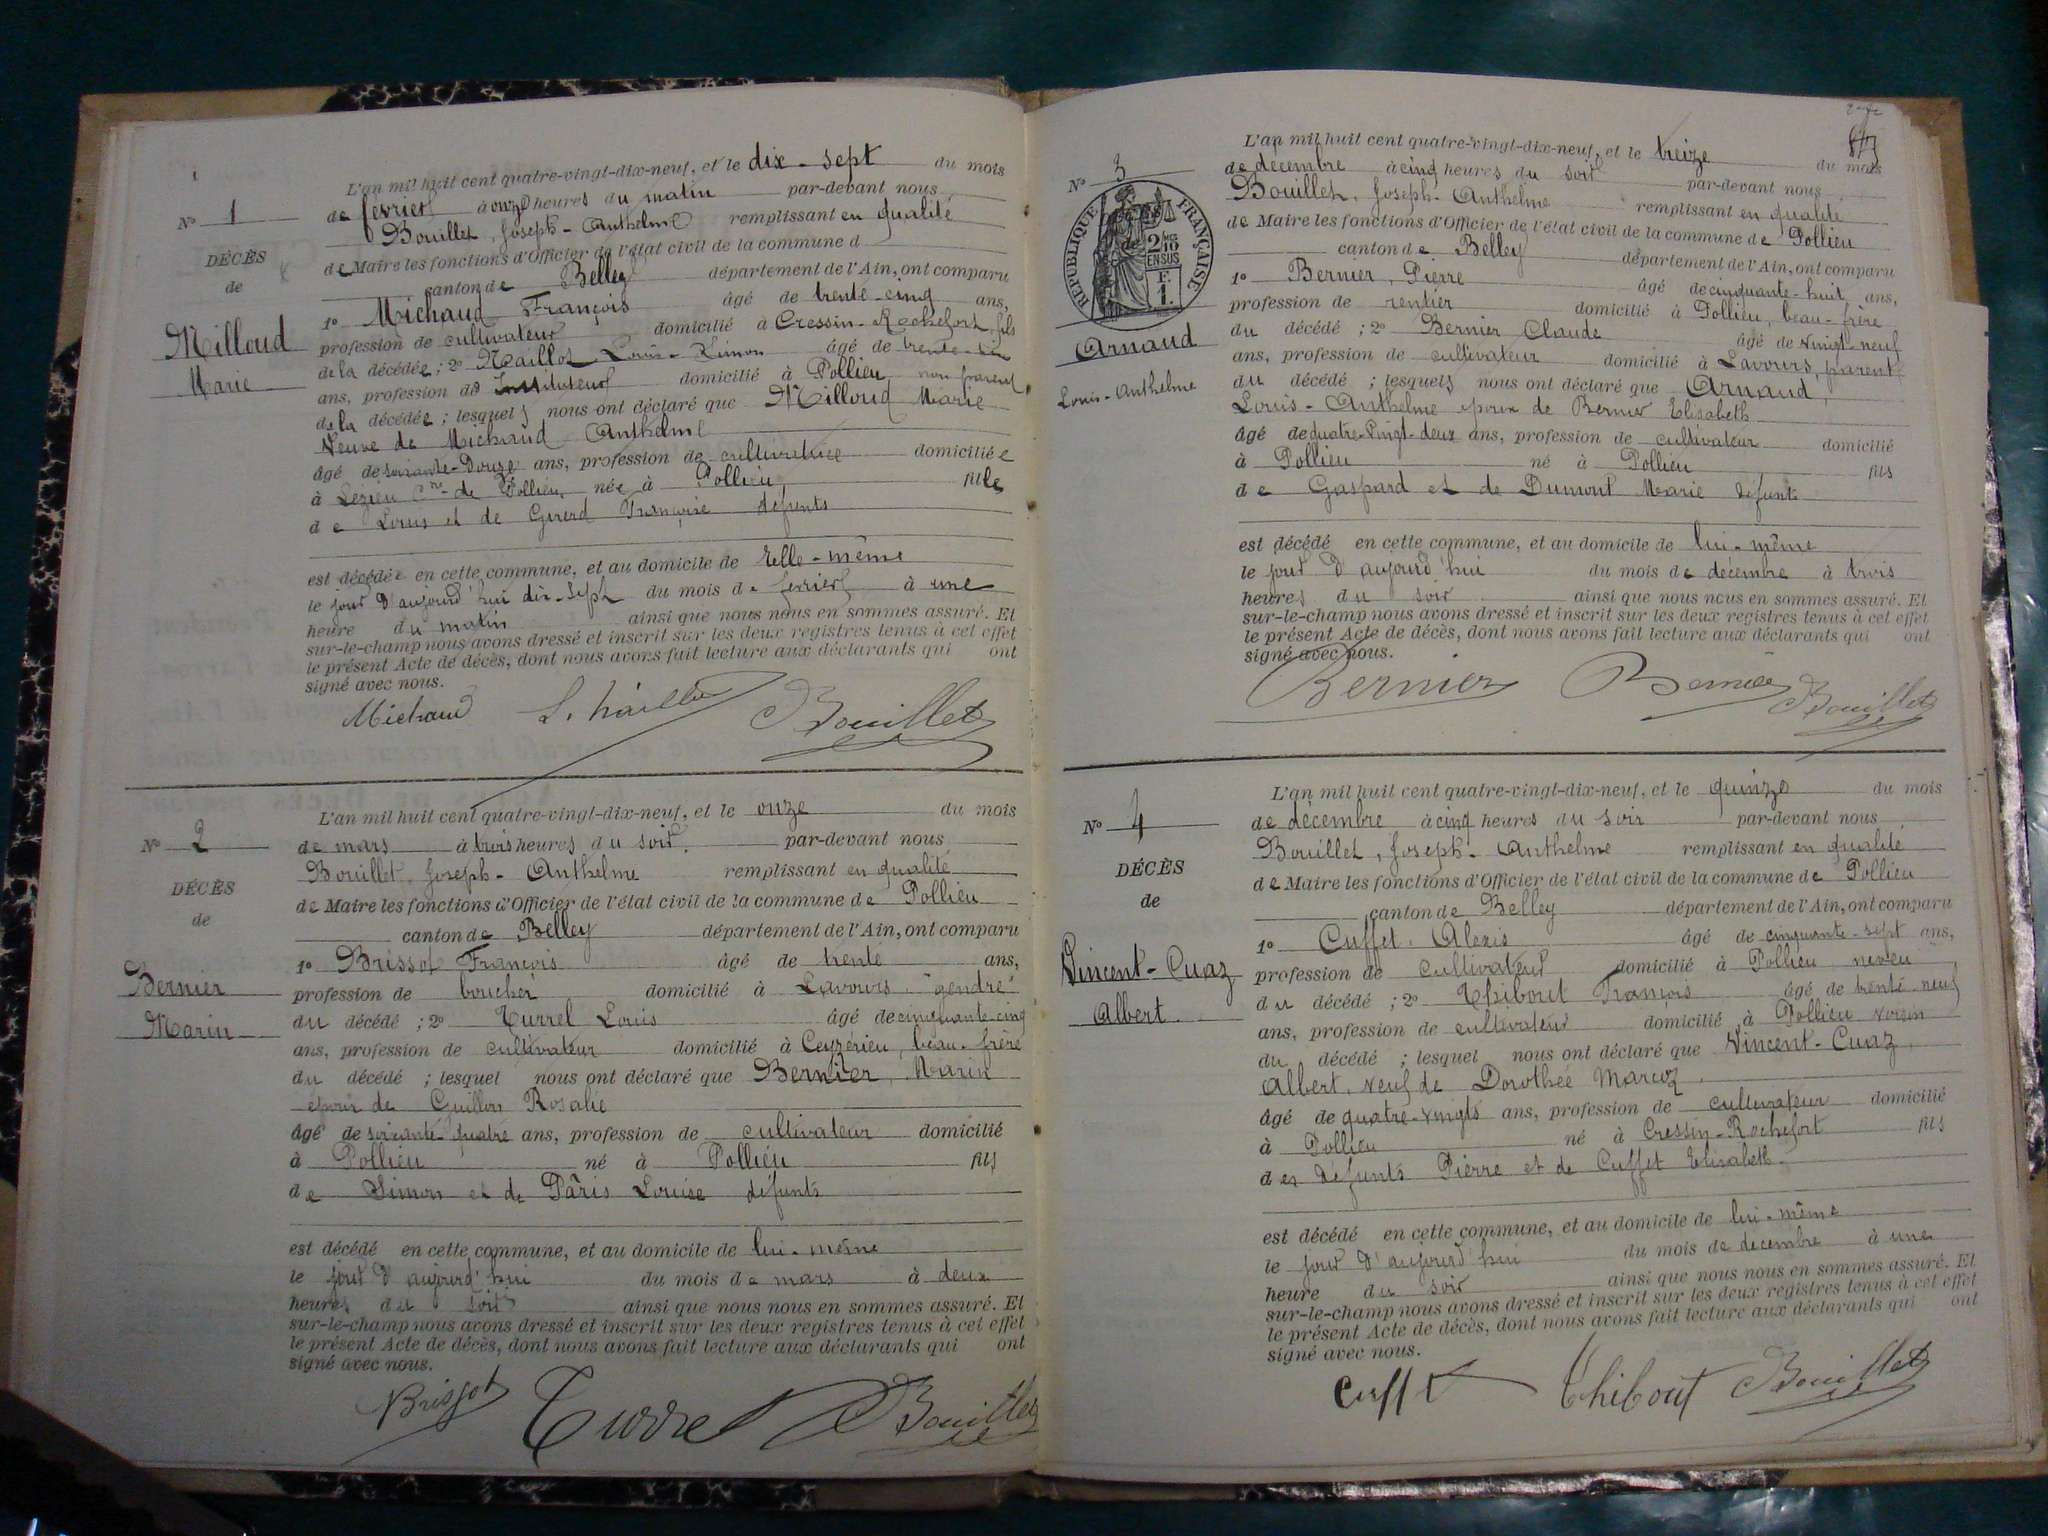 L'an mil huit cent quatre-vingt-dix-neuf, et le dix-sept du mois
de février à onze heures du matin par-devant nous
Bouillet, Joseph-Anthelme remplissant en qualité
de Maire les fonctions d'Officier de l'état civil de la commune d
canton de Belley département de l'Ain, ont comparu
1º Michaud François âgé de trente-cinq ans,
profession de cultivateur domicilié à Cressin-Rochefort, fils
de la décédée; 2º Naillot Louis-Simon âgé de trente
ans, profession de Instituteur domicilié à Pollieu non parent
de la décédée; lesquels nous ont déclaré que Milloud Marie
Veuve de Michaud Anthelme
âgé de soixante-Douze ans, profession de cultivatrice domiciliée
à Lézieu Cne de Pollieu, née à Pollieu, fille
de Louis et de Girerd Françoise défunts
est décédée en cette commune, et au domicile de Elle-même
le jour d'aujourd'hui dix-sept du mois de février à une
heure du matin ainsi que nous nous en sommes assuré. Et
sur-le-champ nous avons dressé et inscrit sur les deux registres tenus à cet effet
le présent Acte de décès, dont nous avons fait lecture aux déclarants qui ont
signé avec nous.
Michaud L. Naillot Bouillet
Nº 1
DÉCÈS
de
Milloud
Marie
L'an mil huit cent quatre-vingt-dix-neuf, et le onze du mois
de mars à trois heures du soir. par-devant nous
Bouillet, Joseph-Anthelme remplissant en qualité
de Maire les fonctions d'Officier de l'état civil de la commune de Pollieu
canton de Belley département de l'Ain, ont comparu
1º Brissot François âgé de trente ans,
profession de boucher domicilié à Lavours gendre
du décédé; 2º Turrel Louis âgé de cinquante-cinq
ans, profession de cultivateur domicilié à Ceyzérieu, beau-frère
du décédé; lesquel nous ont déclaré que Bernier, Marin
époux de Guillon Rosalie
âgé de soixante-quatre ans, profession de cultivateur domicilié
à Pollieu né à Pollieu fils
de Simon et de Pâris Louise défunts
est décédé en cette commune, et au domicile de lui-même
le jour d'aujourd'hui du mois de mars à deux
heures du soir ainsi que nous nous en sommes assuré. Et
sur-le-champ nous avons dressé et inscrit sur les deux registres tenus à cet effet
le présent Acte de décès, dont nous avons fait lecture aux déclarants qui ont
signé avec nous.
Brissot Turrel Bouillet
Nº 2
DÉCÈS
de
Bernier
Marin
L'an mil huit cent quatre-vingt-dix-neuf, et le treize du mois
de décembre à cinq heures du soir par-devant nous
Bouillet, Joseph-Anthelme remplissant en qualité
de Maire les fonctions d'Officier de l'état civil de la commune de Pollieu
canton de Belley département de l'Ain, ont comparu
1º Bernier, Pierre âgé de cinquante-huit ans,
profession de rentier domicilié à Pollieu, beau-frère
du décédé; 2º Bernier Claude âgé de vingt-neuf
ans, profession de cultivateur domicilié à Lavours, parent
du décédé; lesquels nous ont déclaré que Arnaud,
Louis-Anthelme époux de Bernier Elisabeth
âgé de quatre-vingt-deux ans, profession de cultivateur domicilié
à Pollieu né à Pollieu fils
de Gaspard et de Dumont Marie défunts
est décédé en cette commune, et au domicile de lui-même
le jour d'aujourd'hui du mois de décembre à trois
heures du soir ainsi que nous nous en sommes assuré. Et
sur-le-champ nous avons dressé et inscrit sur les deux registres tenus à cet effet
le présent Acte de décès, dont nous avons fait lecture aux déclarants qui ont
signé avec nous.
Bernier Bernier Bouillet
Nº 3
RÉPUBLIQUE FRANÇAISE
2/10
EN SUS
F.
1.
Arnaud
Louis-Anthelme
L'an mil huit cent quatre-vingt-dix-neuf, et le quinze du mois
de décembre à cinq heures du soir par-devant nous
Bouillet, Joseph-Anthelme remplissant en qualité
de Maire les fonctions d'Officier de l'état civil de la commune de Pollieu
canton de Belley département de l'Ain, ont comparu
1º Cuffet Alexis âgé de cinquante-sept ans,
profession de cultivateur domicilié à Pollieu neveu
du décédé; 2º Thibout François âgé de trente-neuf
ans, profession de cultivateur domicilié à Pollieu voisin
du décédé; lesquel nous ont déclaré que Vincent-Cuaz,
Albert, veuf de Dorothée Marcoz
âgé de quatre-vingts ans, profession de cultivateur domicilié
à Pollieu né à Cressin-Rochefort fils
des défunts Pierre et de Cuffet Elisabeth.
est décédé en cette commune, et au domicile de lui-même
le jour d'aujourd'hui du mois de décembre à une
heure du soir ainsi que nous nous en sommes assuré. Et
sur-le-champ nous avons dressé et inscrit sur les deux registres tenus à cet effet
le présent Acte de décès, dont nous avons fait lecture aux déclarants qui ont
signé avec nous.
Cuffet Thibout Bouillet
Nº 4
DÉCÈS
de
Vincent-Cuaz
Albert